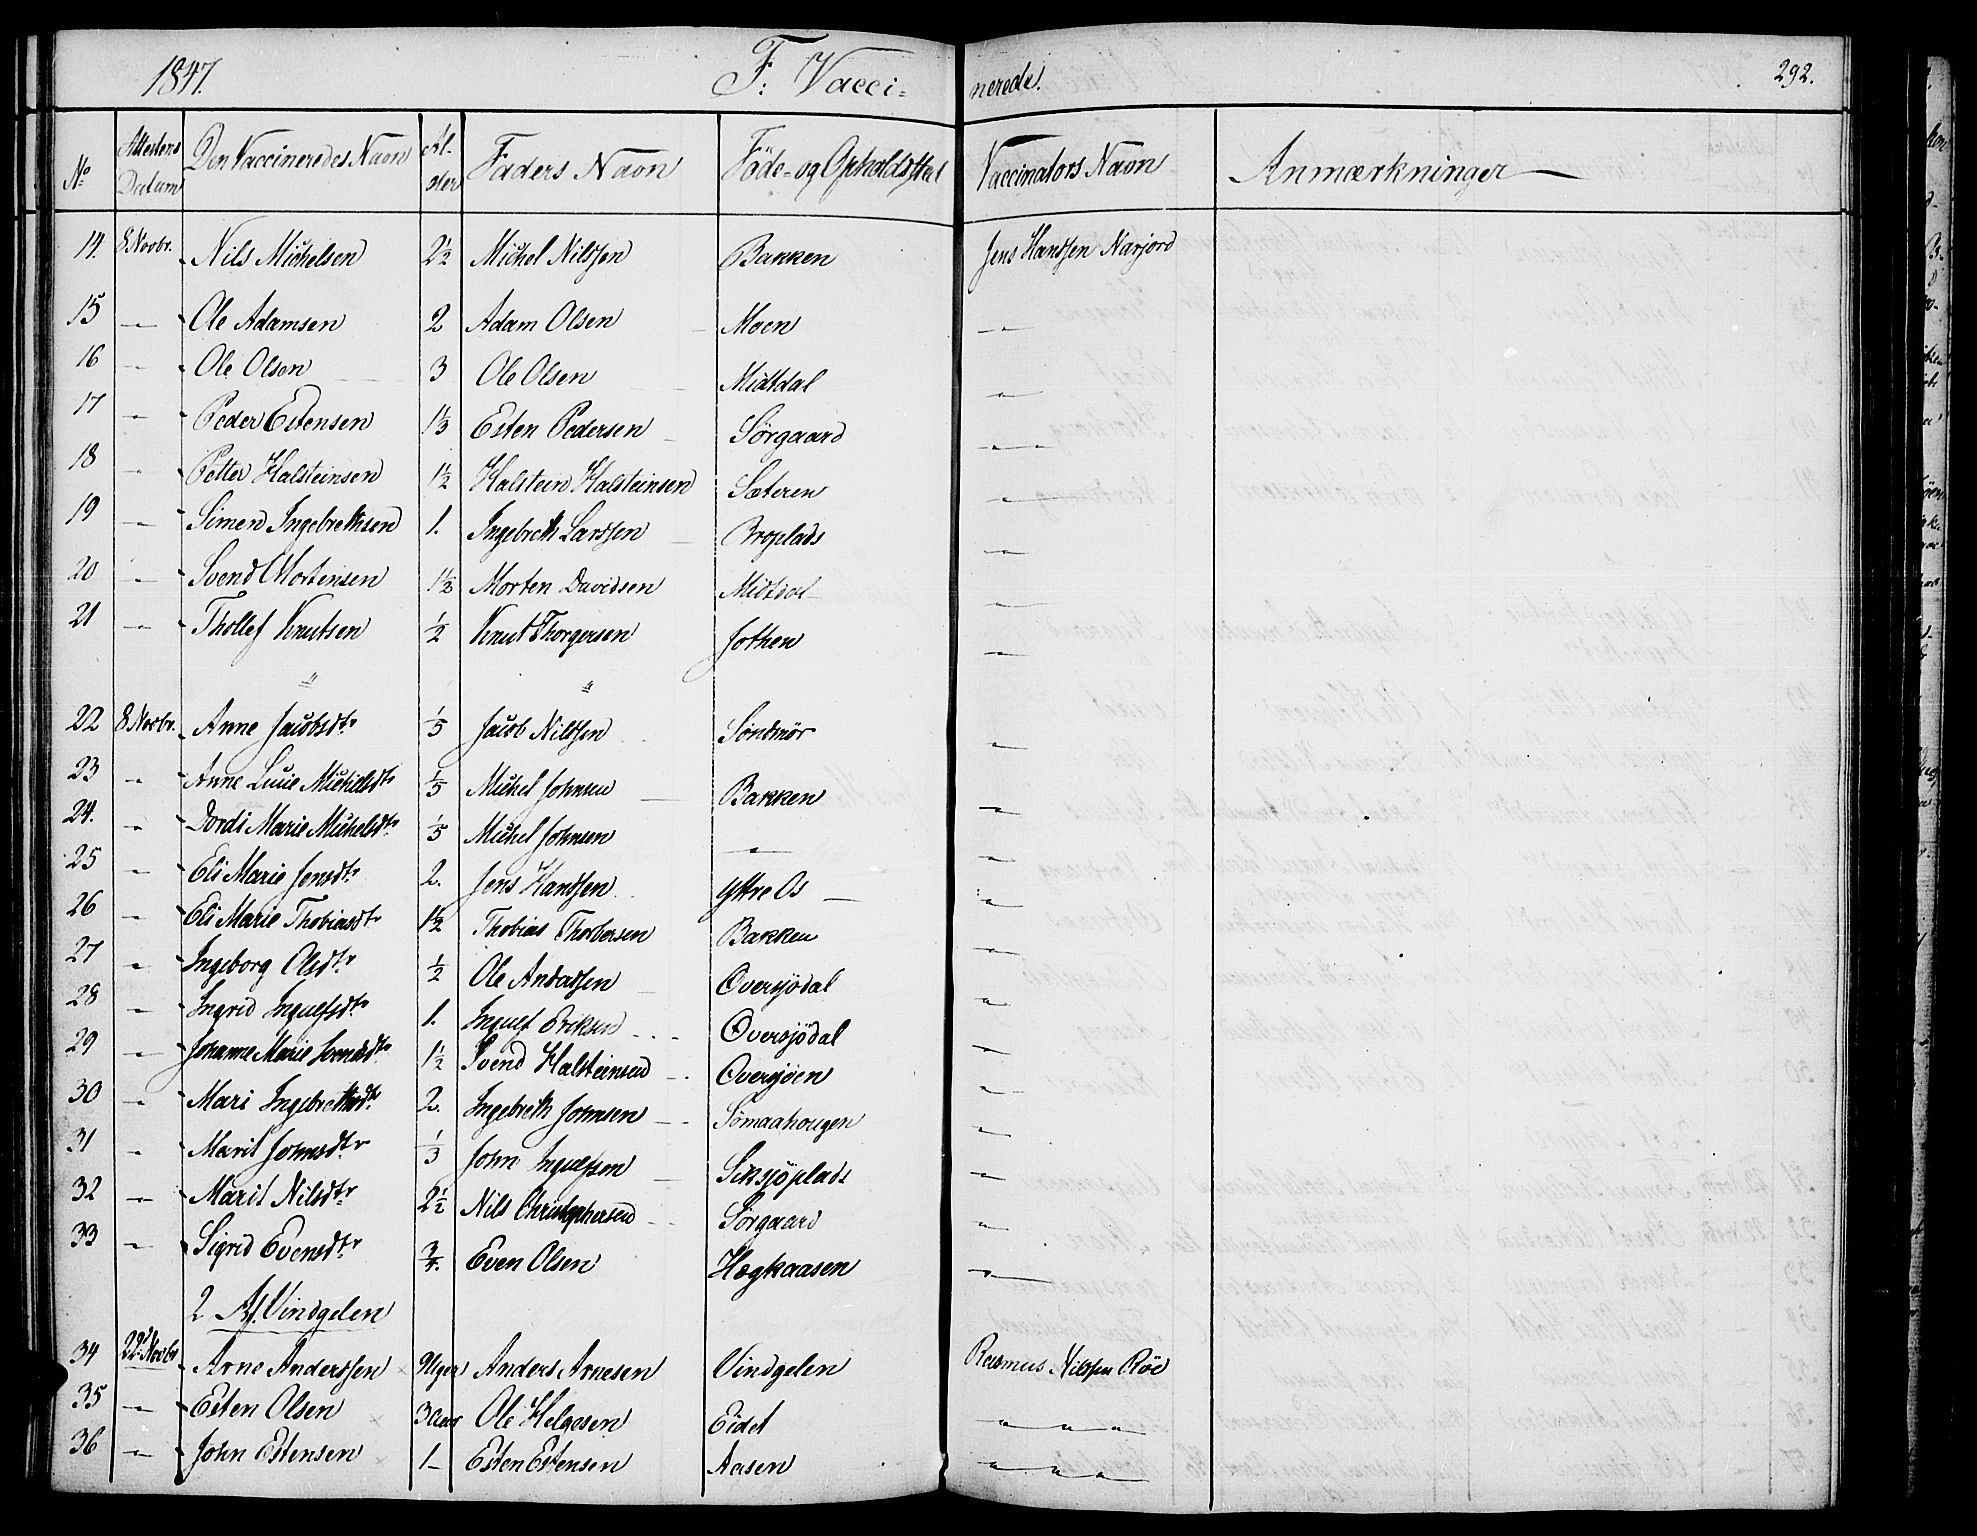 1847. F: Vacci= nerede. 292.
No Attestens Datum Den Vaccineredes Navn Al- der Faders Navn Föde- og Opholdssted Vaccinators Navn Anmærkninger
14. 8 Novbr. Nils Michelsen 2½ Michel Nilssen Bakken Jens Hanssen Narjord
15 " Ole Adamsen 2 Adam Olsen Moen "
16 " Ole Olsen 3 Ole Olsen Midtdal "
17 " Peder Estensen 1⅓ Esten Pedersen Sörgaard "
18 " Petter Halsteinsen 1½ Halstein Halsteinsen Sæteren "
19 " Simen Ingebrethsen 1. Ingebreth Larssen Broplads "
20 " Svend Mortensen 1½ Morten Davidsen Midtdal "
21 " Thollef Knutsen ½ Knut Thorgersen Jothen "
" "
22 8 Novbr. Anne Jacobsdtr ⅕ Jacob Nilssen Söndmör "
23 " Anne Lucie Michelsdtr ⅕ Michel Johnsen Bakken "
24. " Dordi Marie Michelsdtr ⅕ Michel Johnsen " "
25 " Eli Marie Jensdtr 2. Jens Hanssen Yttre Os "
26 " Eli Marie Thobiasdtr 1½ Thobias Thorbersen Bakken "
27 " Ingeborg Olsdtr ½ Ole Andassen Oversjodal "
28 " Ingrid Inguelfsdtr 1. Inguelf Eriksen Oversjödal "
29 " Johanne Marie Svendsdtr 1½ Svend Halsteinsen Oversjöen "
30 " Mari Ingebrethsdtr 2. Ingebreth Johnsen Sömaahougen "
31 " Marit Johnsdtr ⅓ John Inguelfsen Siksjöplads "
32 " Marit Nilsdtr 2½ Nils Christophersen Sörgaard "
33 " Sigrid Evensdtr ¾. Even Olsen Hægkaasen "
2 Af Vindgelen
34 22 Novbr Arne Anderssen 9 Uger Anders Arnesen Vindgelen Rasmus Nilssen Röe
35 " Esten Olsen 3 Aar Ole Helgesen Eidet " " "
36 " John Estensen 1 - Esten Estensen Aasen " " "